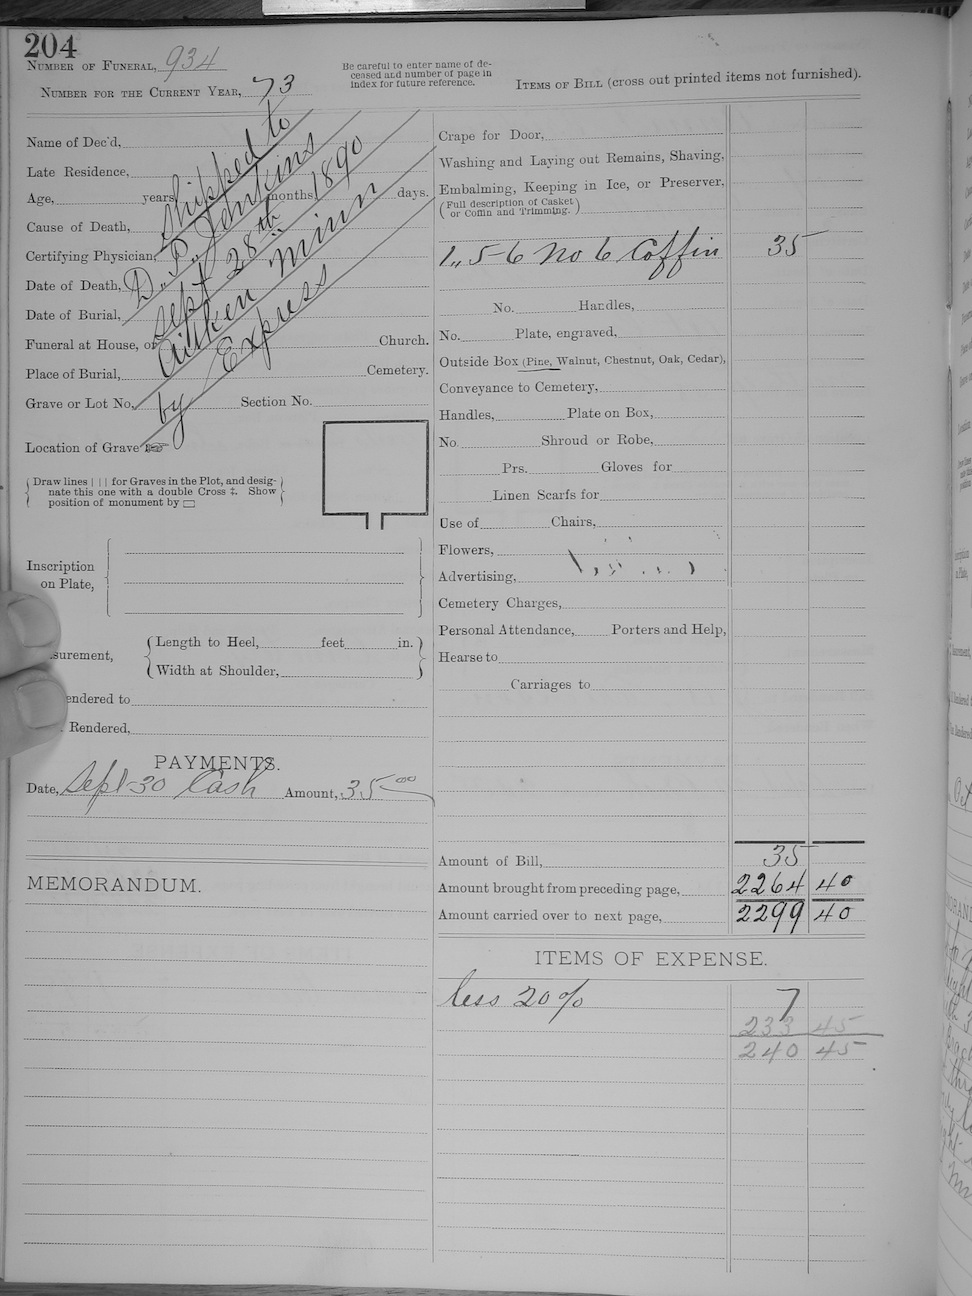 204
NUMBER OF FUNERAL, 934
NUMBER FOR THE CURRENT YEAR, 73
Be careful to enter name of de-
ceased and number of page in
index for future reference.
ITEMS OF BILL (cross out printed items not furnished).
Name of Dec'd,
Late Residence,
Age, years months days.
Cause of Death,
Certifying Physician,
Date of Death,
Date of Burial,
Funeral at House, or Church.
Place of Burial, Cemetery.
Grave or Lot No. Section No.
shipped to
D., P., Jenkins
Sept 28th 1890
Aitken Minn
by Express
Location of Grave ☞
Draw lines | | | for Graves in the Plot, and desig-
nate this one with a double Cross ‡. Show
position of monument by ▭
Inscription
on Plate,
surement,
Length to Heel, feet in.
Width at Shoulder,
endered to
Rendered,
PAYMENTS.
Date, Sept 30 Cash Amount, 35 00
MEMORANDUM.
Crape for Door,
Washing and Laying out Remains, Shaving,
Embalming, Keeping in Ice, or Preserver,
(Full description of Casket
or Coffin and Trimming.)
1,, 5-6 No 6 Coffin 35
No. Handles,
No. Plate, engraved,
Outside Box (Pine, Walnut, Chestnut, Oak, Cedar),
Conveyance to Cemetery,
Handles, Plate on Box,
No. Shroud or Robe,
Prs. Gloves for
Linen Scarfs for
Use of Chairs,
Flowers,
Advertising,
Cemetery Charges,
Personal Attendance, Porters and Help,
Hearse to
Carriages to
Amount of Bill, 35
Amount brought from preceding page, 2264 40
Amount carried over to next page, 2299 40
ITEMS OF EXPENSE.
less 20% 7
233 45
240 45